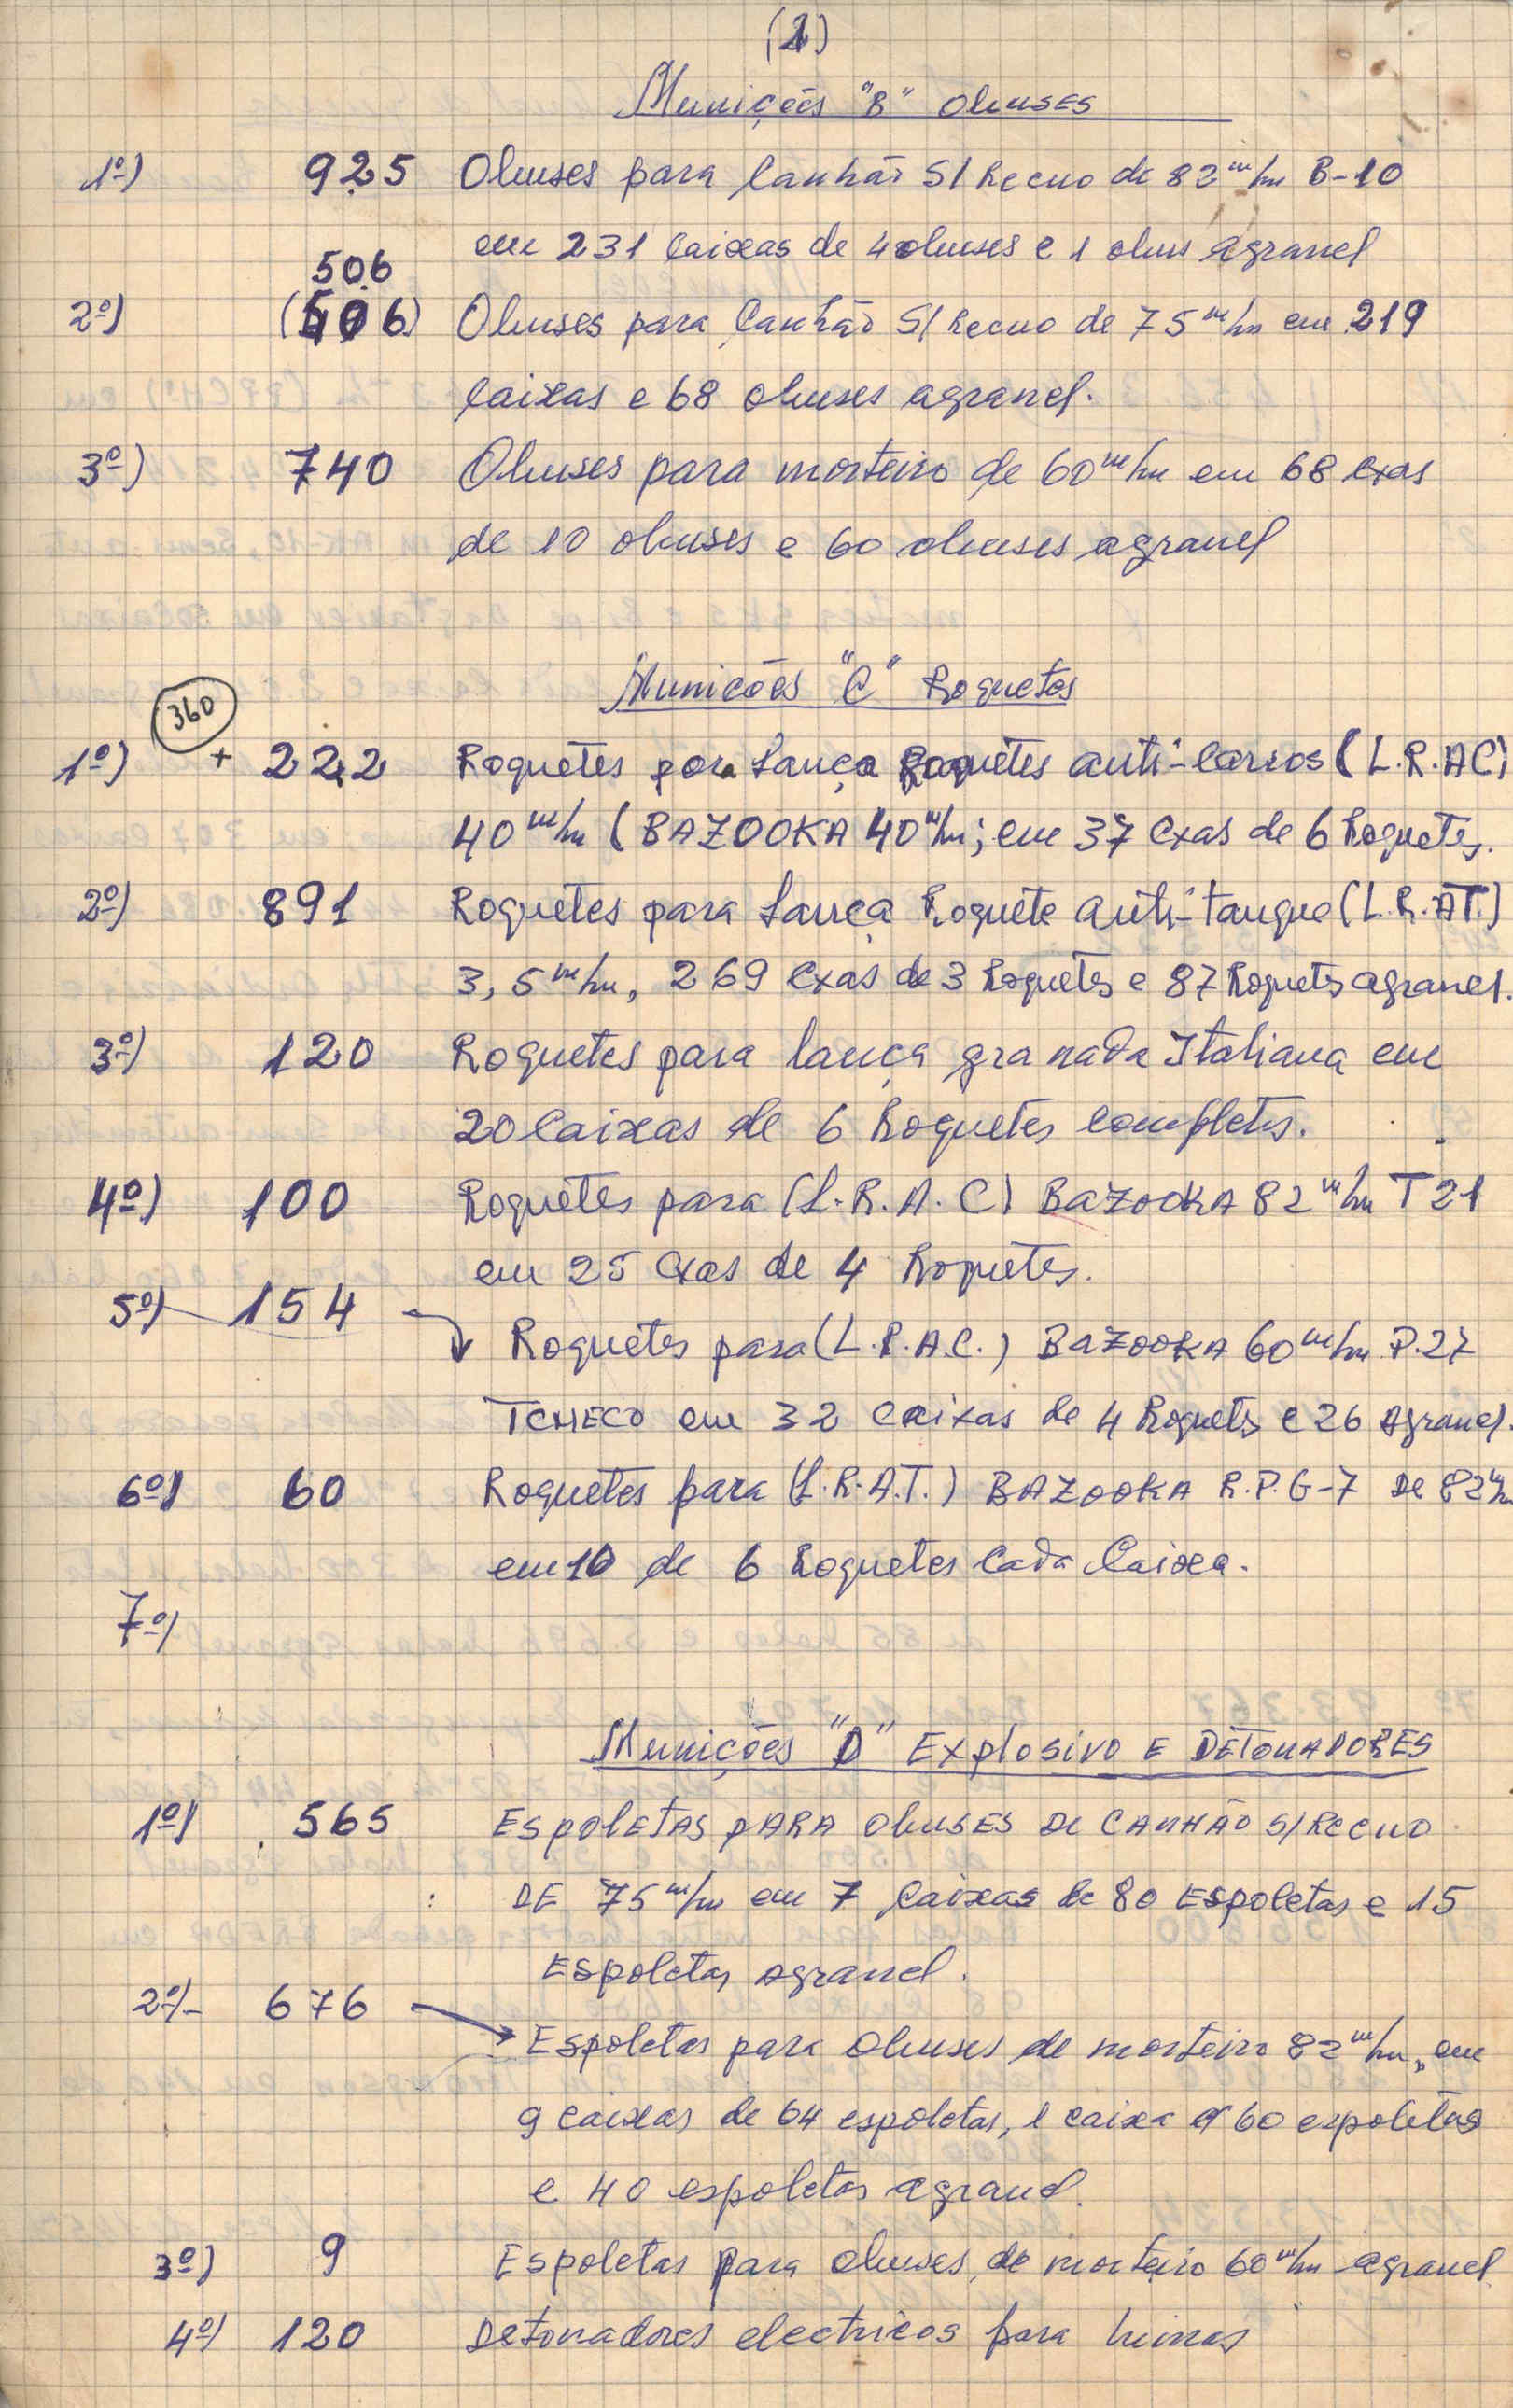 (1)
Munições "B" Obuses
1º) 925 Obuses para Canhão S/ Recuo de 82 m/m B-10
em 231 Caixas de 4 obuses e 1 obus agranel
506
2º) (506) Obuses para Canhão S/ Recuo de 75 m/m em 219
Caixas e 68 obuses agranel.
3º) 740 Obuses para morteiro de 60 m/m em 68 Cxas
de 10 obuses e 60 obuses agranel
Municões "C" Roquetes
360
1º) + 222 Roquetes para Lança Roquetes anti-Carros (L.R.AC)
40 m/m (BAZOOKA 40 m/m; em 37 Cxas de 6 Roquetes.
2º) 891 Roquetes para Lança Roquete anti-tanque (L.R.AT.)
3,5 m/m, 269 Cxas de 3 Roquetes e 87 Roquets agranel.
3º) 120 Roquetes para lança granada Italiana em
20 Caixas de 6 Roquetes Completos.
4º) 100 Roquetes para (L.R.A.C) BaZooKA 82 m/m T 21
em 25 Cxas de 4 Roquetes.
5º) 154
Roquetes para (L.R.A.C.) BaZooKA 60 m/m P.27
TCHECO em 32 Caixas de 4 Roquets e 26 Agranel.
6º) 60 Roquetes para (L.R.A.T.) BAZOOKA R.P.G-7 De 82 m/m
em 10 de 6 Roquetes Cada Caixa.
7º)
Munições "D" Explosivo E DETONADORES
1º) 565 EspolETAS pARA ObusES De CANHÃO S/ RECUO
DE 75 m/m em 7 Caixas de 80 Espoletas e 15
Espoletas Agranel.
2º)- 676
Espoletas para Obuses de morteiro 82 m/m, em
9 caixas de 64 espoletas, 1 caixa 60 espoletas
e 40 espoletas agranel.
3º) 9 Espoletas para obuses de morteiro 60 m/m agranel
4º) 120 Detonadores electricos para minas